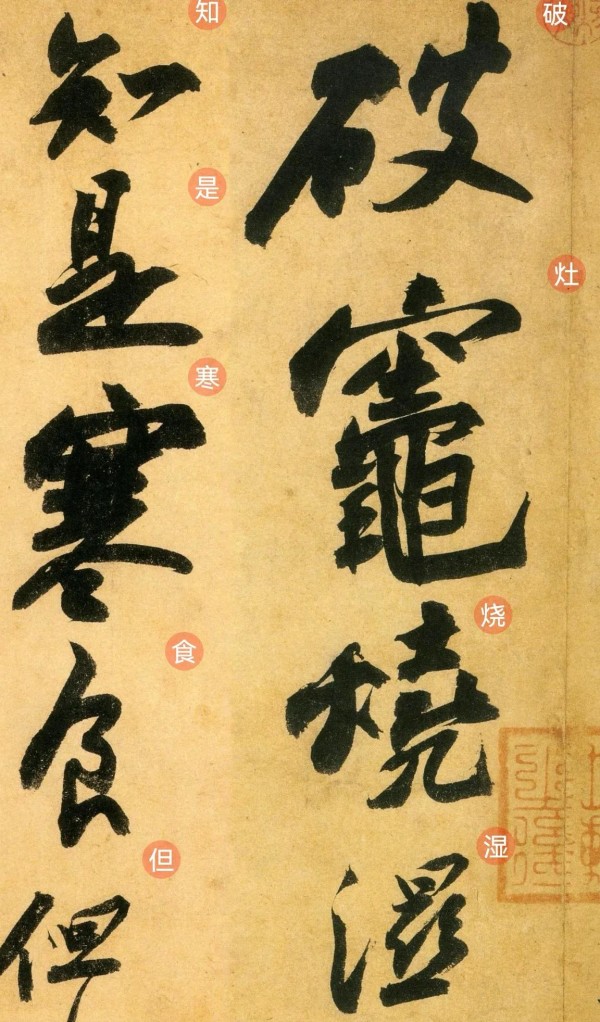 破竈燒濕
破灶烧湿
知是寒食但
知是寒食但